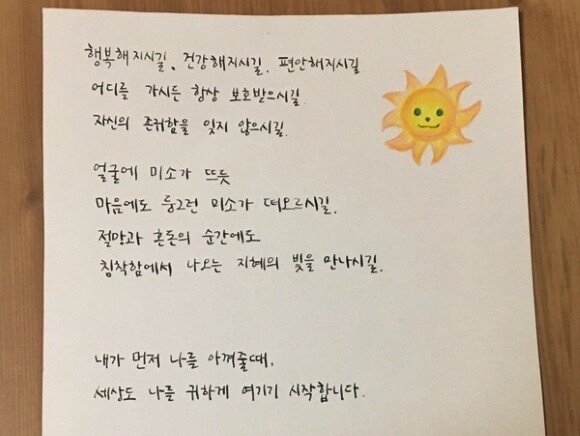 행복해지시길. 건강해지시길. 편안해지시길
어디를 가시든 항상 보호받으시길.
자신의 존귀함을 잊지 않으시길.
얼굴에 미소가 뜨듯
마음에도 둥그런 미소가 떠오르시길.
절망과 혼돈의 순간에도
침착함에서 나오는 지혜의 빛을 만나시길.
내가 먼저 나를 아껴줄때,
세상도 나를 귀하게 여기기 시작합니다.